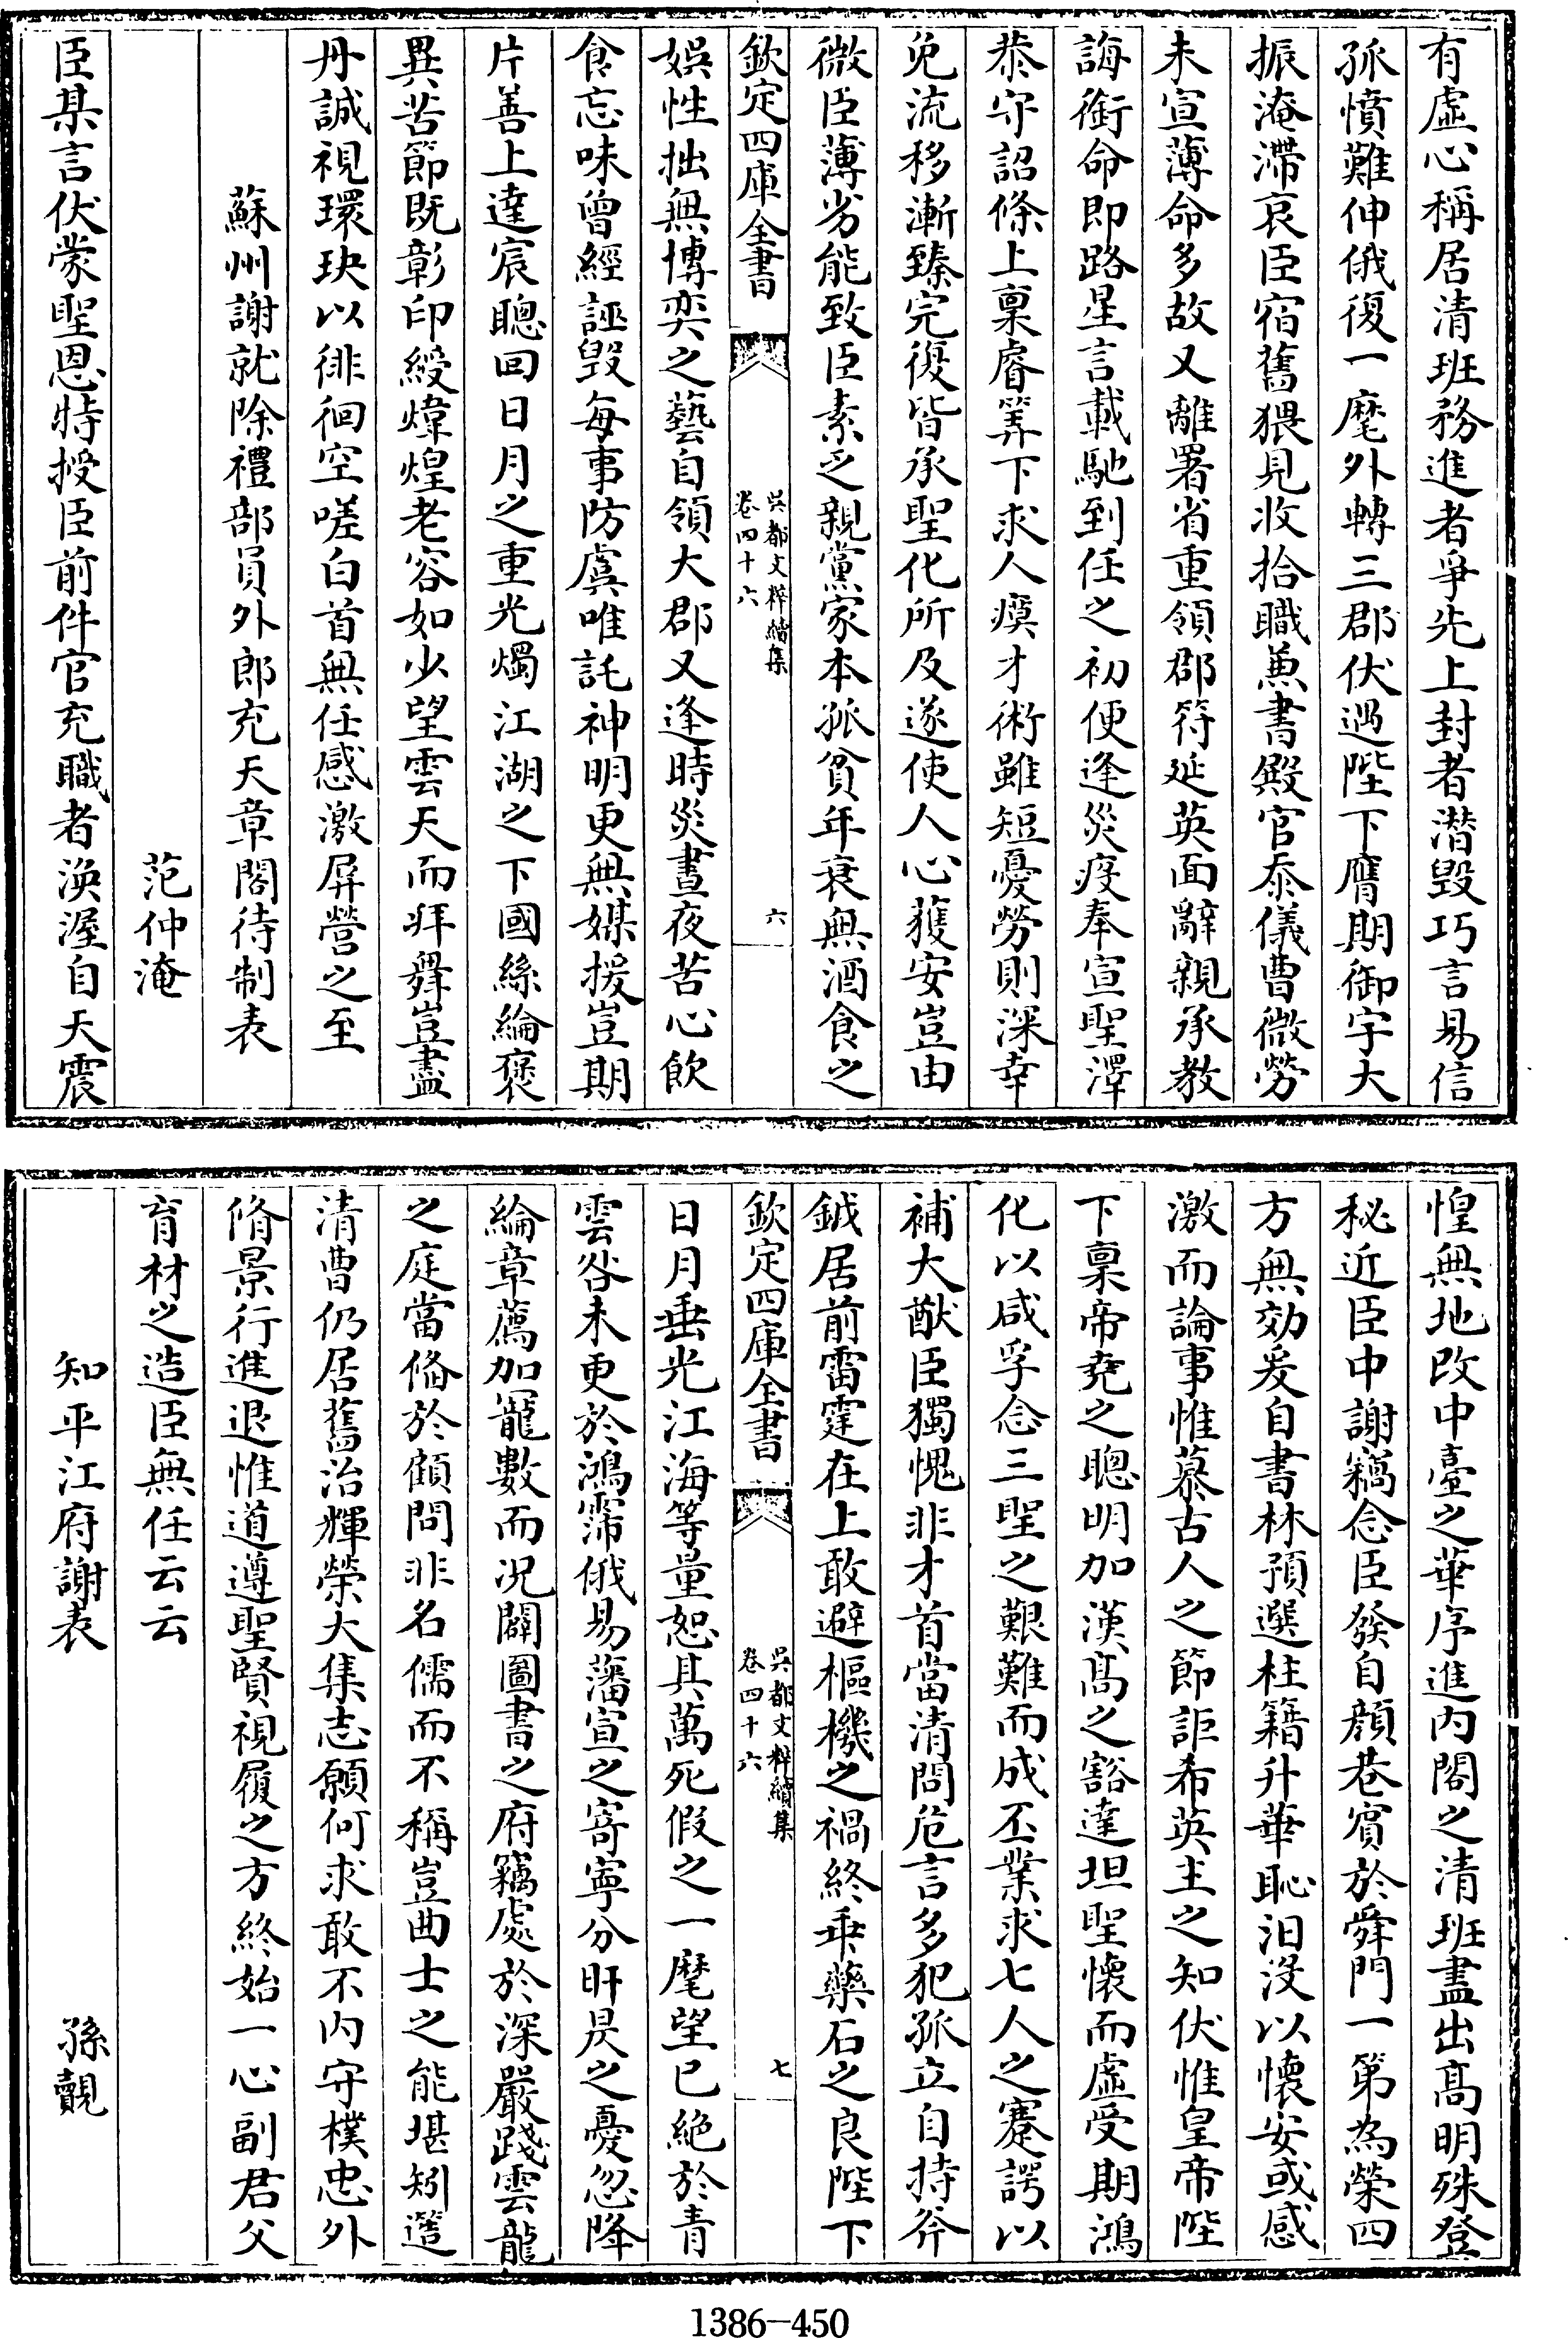 有虛心稱居清班務進者爭先上封者潜毁巧言易信
孤憤難伸俄復一麾外轉三郡伏遇陛下膺期御宇大
振淹滯哀臣宿舊猥見收拾職兼書殿官忝儀曹微勞
未宣薄命多故又離署省重領郡符延英面辭親承教
誨銜命即路星言載馳到任之初便逢災疫奉宣聖澤
恭守詔條上稟睿筭下求人瘼才術雖短憂勞則深幸
免流移漸臻完復皆承聖化所及遂使人心獲安豈由
微臣薄劣能致臣素乏親黨家本孤貧年衰無酒食之
欽定四庫全書
吳都文粹續集
卷四十六
六
娛性拙無博奕之藝自領大郡又逢時災晝夜苦心飲
食忘味曾經誣毁每事防虞唯託神明更無媒援豈期
片善上達宸聰回日月之重光燭江湖之下國絲綸褒
異苦節既彰印綬煒煌老容如少望雲天而拜舞豈盡
丹誠視環玦以徘徊空嗟白首無任感激屏營之至
蘇州謝就除禮部員外郎充天章閣待制表
范仲淹
臣某言伏蒙聖恩特授臣前件官充職者渙渥自天震
惶無地改中臺之華序進内閣之清班盡出高明殊登
秘近臣中謝竊念臣發自顔巷賓於舜門一第為榮四
方無効爰自書林預選柱籍升華恥汨没以懷安或感
激而論事惟慕古人之節詎希英主之知伏惟皇帝陛
下稟帝堯之聰明加漢高之豁達坦聖懷而虛受期鴻
化以咸孚念三聖之艱難而成丕業求七人之蹇諤以
補大猷臣獨愧非才首當清問危言多犯孤立自持斧
鉞居前雷霆在上敢避樞機之禍終乖藥石之良陛下
欽定四庫全書
吳都文粹續集
卷四十六
七
日月垂光江海等量恕其萬死假之一麾望已絶於青
雲咎未更於鴻霈俄易藩宣之寄寧分旰昃之憂忽降
綸章薦加寵數而况闢圖書之府竊處於深嚴踐雲龍
之庭當偹於顧問非名儒而不稱豈曲士之能堪矧還
清曹仍居舊治輝榮大集志願何求敢不内守樸忠外
脩景行進退惟道遵聖賢視履之方終始一心副君父
育材之造臣無任云云
知平江府謝表
孫覿
1386—450